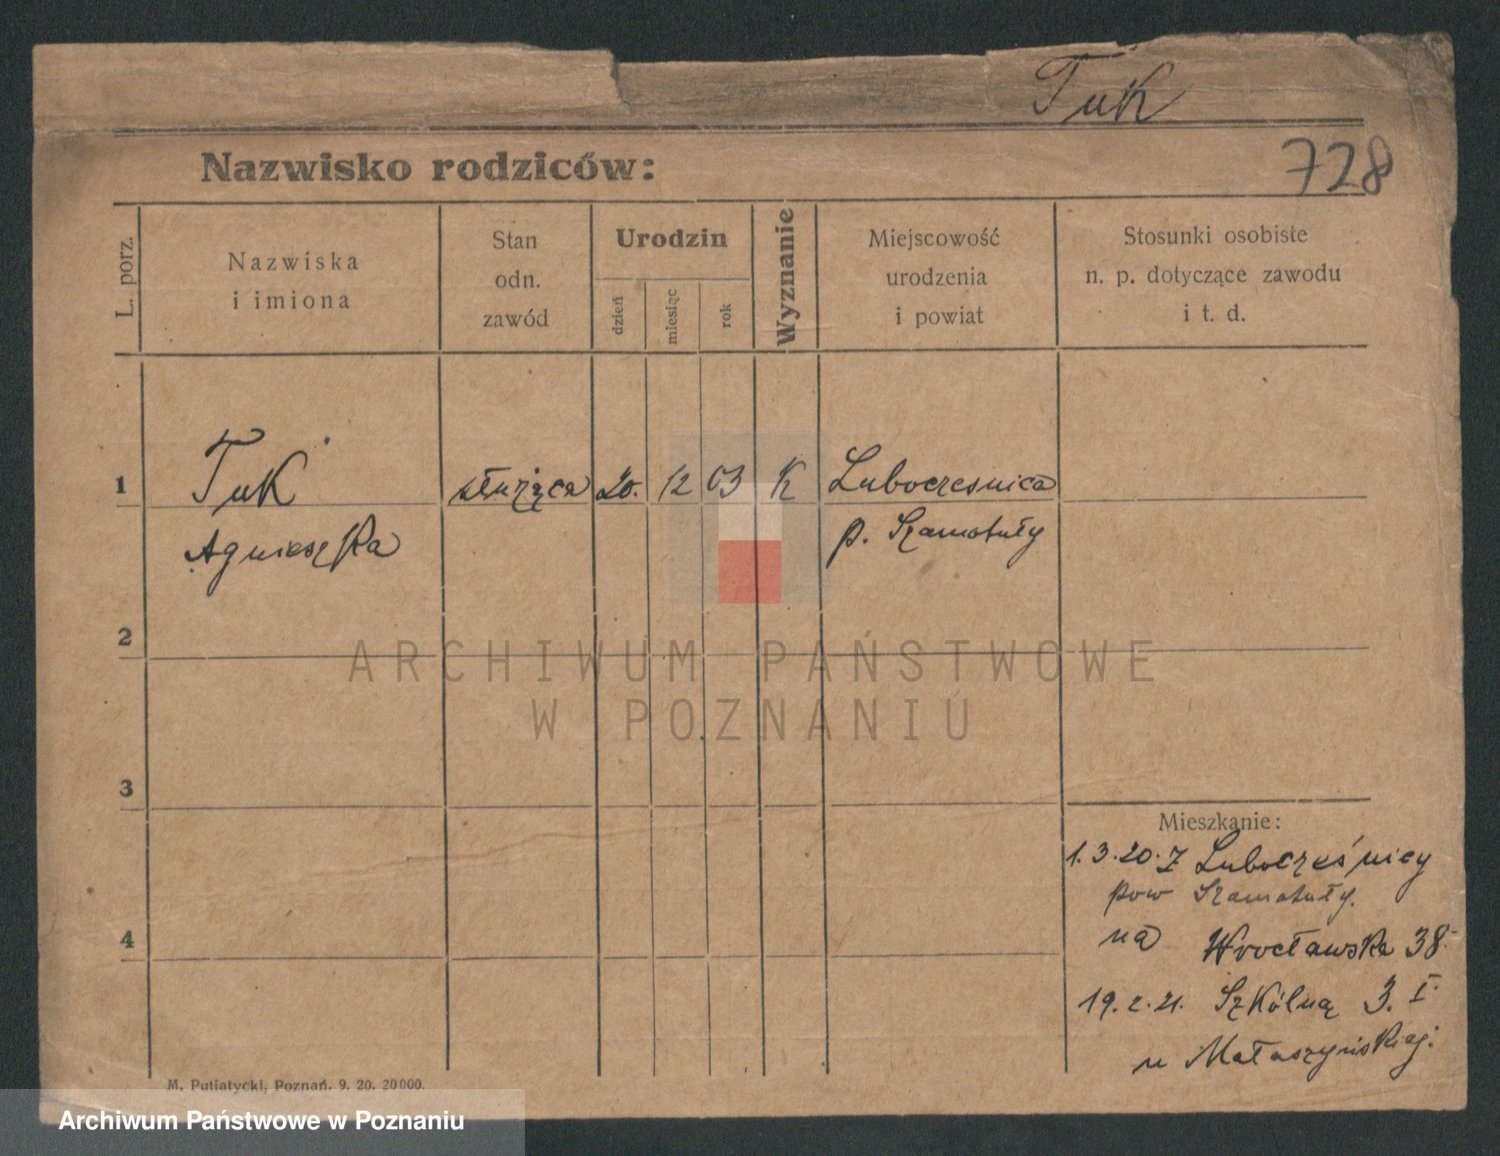 Tuk
Nazwisko rodziców:
728
L. porz.
Nazwiska
i imiona
Stan
odn.
zawód
Urodzin
dzień
miesiąc
rok
Wyznanie
Miejscowość
urodzenia
i powiat
Stosunki osobiste
n. p. dotyczące zawodu
i t. d.
1
Tuk
służąca
20.
12
03
K
Lubocześnica
Agnieszka
p. Szamotuły
2
ARCHIWUM PAŃSTWOWE
W POZNANIU
3
Mieszkanie:
1.3.20. z Lubocześnicy
pow Szamotuły.
4
na Wrocławska 38
19.2.21. Szkólną 3. I.
u Mataszyńskiej.
M. Putiatycki, Poznań. 9. 20. 20000.
Archiwum Państwowe w Poznaniu